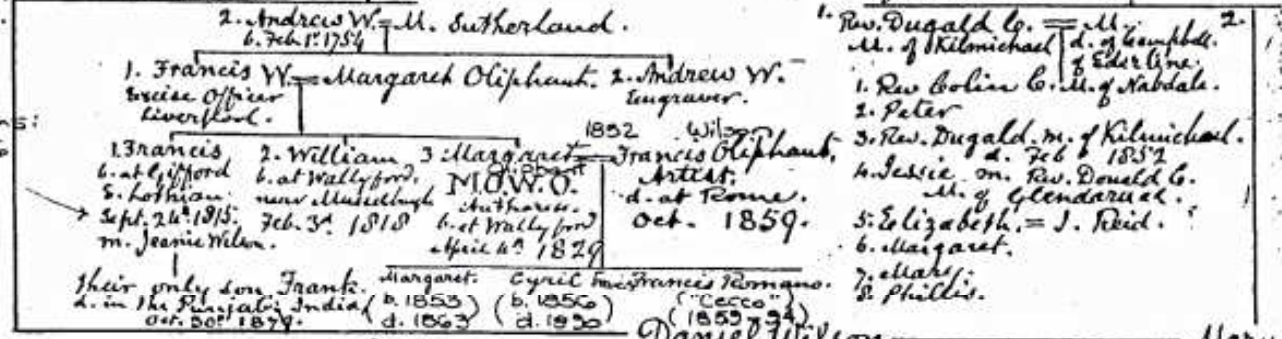 2. Andrew W. = M. Sutherland.
b. Feb 1st 1754
1. Francis W. = Margaret Oliphant. 2. Andrew W.
Excise Officer
Liverpool.
Engraver.
1. Francis
b. at Gifford
E. Lothian
Sept. 24th 1815.
m. Jeanie Wilson.
2. William
b. at Wallyford,
near Musselburgh
Feb. 3rd 1818
3. Margaret =
Oliphant
M.O.W.O.
Authoress.
b. at Wallyford
April 4th 1829
1852 Wilson
Francis Oliphant,
Artist.
d. at Rome.
Oct. 1859.
their only son Frank.
d. in the Punjab, India
Oct. 30th 1879.
Margaret.
(b. 1853
d. 1863)
Cyril
(b. 1856
d. 1890)
Francis Romano.
("Cecco"
(1859-94)
1. Rev. Dugald C. = M. 2.
M. of Kilmichael
d. of Campbell.
of Ederline.
1. Rev Colin C. M. of
2. Peter
3. Rev. Dugald. m. of Kilmichael.
d. Feb 1852
4. Jessie m. Rev. Donald C.
M. of Glendaruel.
5. Elizabeth. = J. Reid.
6. Margaret.
7. Mary.
8. Phillis.
Daniel Wilson
Mary